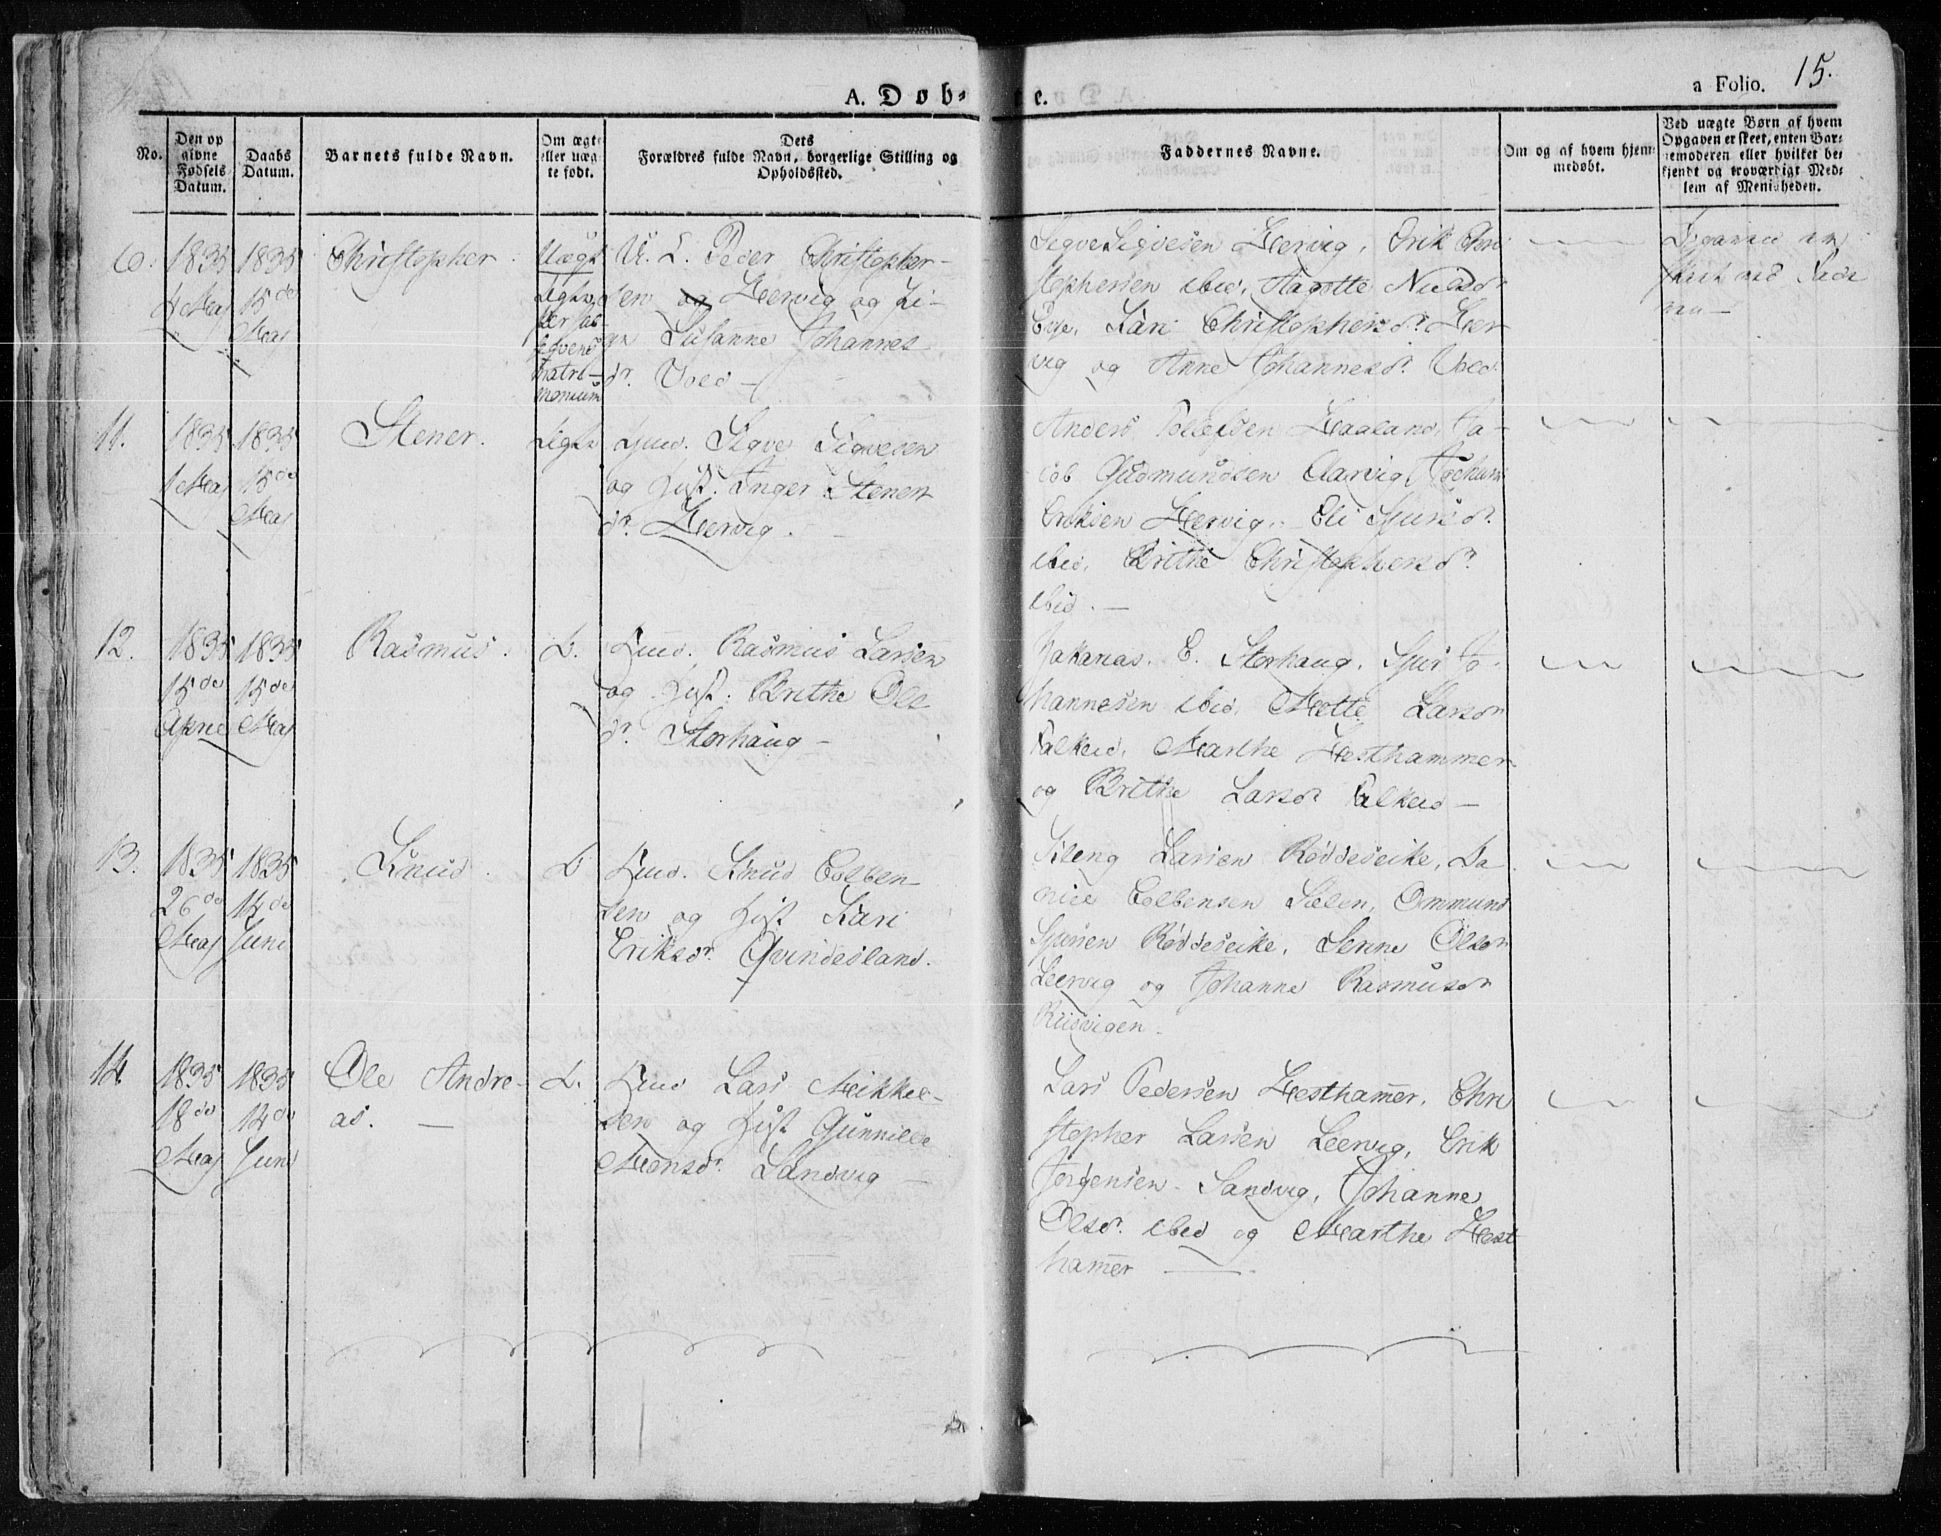 A. Døb- te.
a Folio. 15.
No.
Den op
givne
Fødsels
Datum.
Daabs
Datum.
Barnets fulde Navn.
Om ægte
eller uæg-
te født.
Dets
Forældres fulde Navn, borgerlige Stilling og
Opholdssted.
Faddernes Navne.
Om og af hvem hjem-
medøbt.
Ved uægte Børn af hvem
Opgaven er skeet, enten Bar-
nemoderen eller hvilket be-
kjendt og troværdigt Med-
lem af Menigheden.
1835
4 Maj
1835
15de
Maj
Christopher.
Uægt
per sub-
seqvens
matri-
monium
U. K. Peder Christopher-
sen og Hervig og Pi-
Susanne Johannes-
dr. Vold -
Sigve Sigvesen Hervig, Erik Chri-
stophersen ibid,
Kari Christophersdr. Her-
vig og Anne Johannesdr. Vold.
11.
1835
1 Maj
1835
15de
Maj
Stener.
Sigve Sigvesen
og Hust. Inger Steners
dr. Hervig.
Anders Haaland, Ja-
cob Gudmundsen Aarvig, Jochum
Eriksen Hervig, Eli Sjursdr.
ibid, Brithe Christophersdr.
ibid. -
12.
1835
15de
April
1835
15de
Maj
Rasmus.
Rasmus Larsen
og Hust. Brithe Ols
dr. Storhaug -
Zakarias. E. Storhaug, Sjur Jo-
hannesen ibid, Mette Larsdr
Falkeid, Marthe Hesthammer
og Brithe Larsdr Falkeid -
13.
1835
26de
Maj
1835
14de
Juni
Knud.
Knud Colben-
sen og Hust Kari
Eriksdr. Qvindesland.
Larsen Røddeseike, Da-
niel Colbensen Ommund
Sjursen Røddeseike, Olsdr
Leervig og Johanne Rasmusdr
Riisvigen.
14.
1835
18de
Maj
1835
14de
Juni
Ole Andre-
as. -
L.
Lars Mikkel-
sen og Hust Gunnille
Monsdr. Sandvig -
Lars Pedersen Hesthamer, Chri
stopher Larsen Leervig, Erik
Jørgensen Sandvig, Johanne
Olsdr. ibid og Marthe Hest
hamer